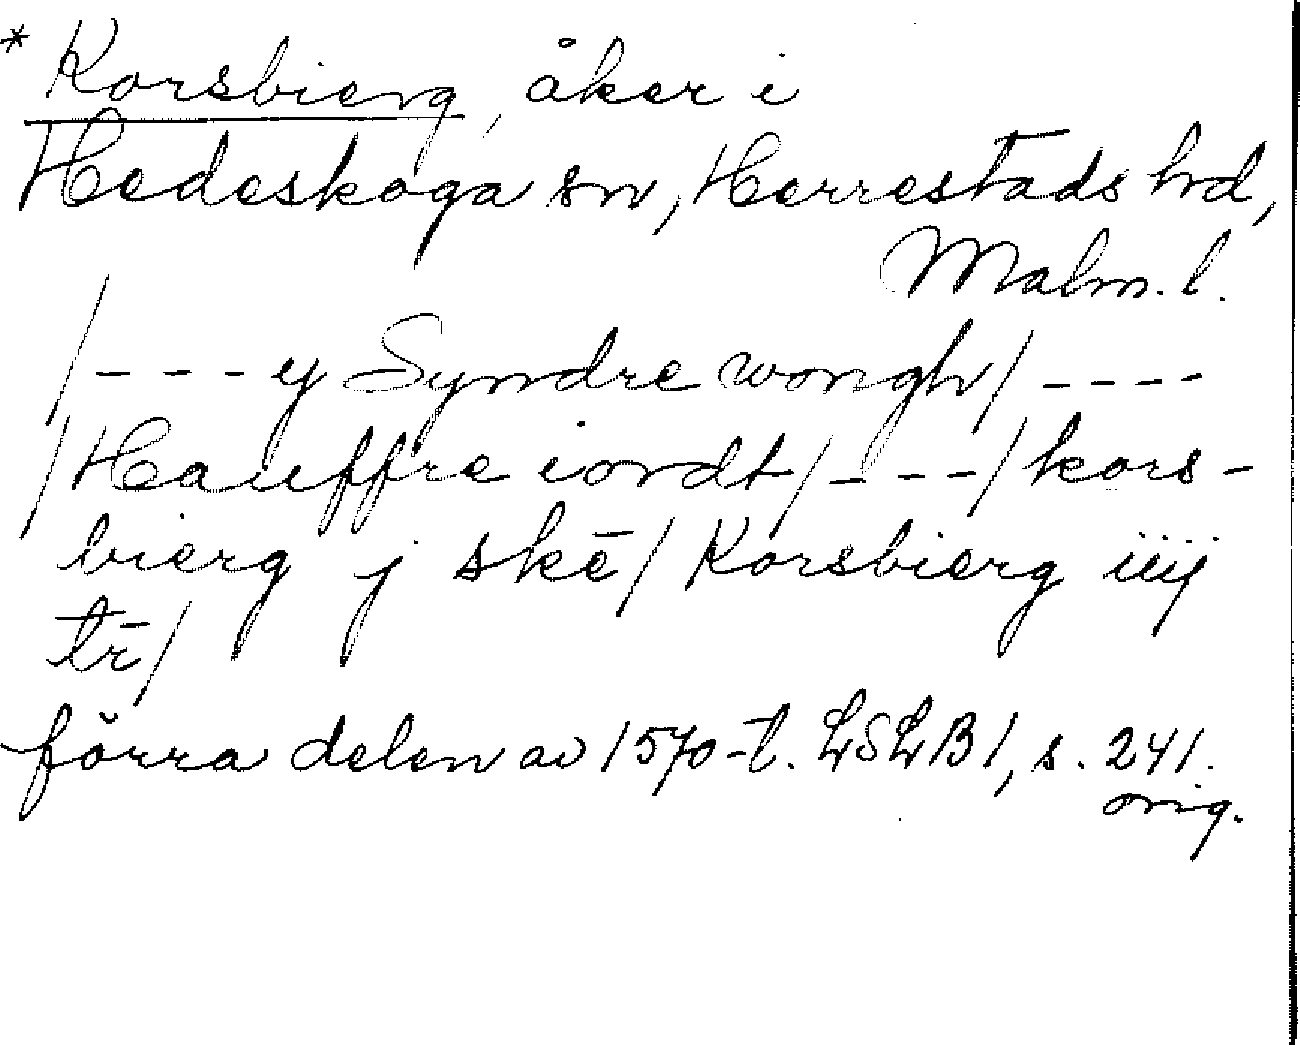 * Korsbierg, åker i
Hedeskoga sn, Herrestads hd,
Malm. l.
/---- y Syndre wongh/ ----
/Hauffre iordt/ ---- /kors-
bierg j skē/ Korsbierg iiij
tr̄/
förra delen av 1570-t. LSLB 1, s. 241.
orig.